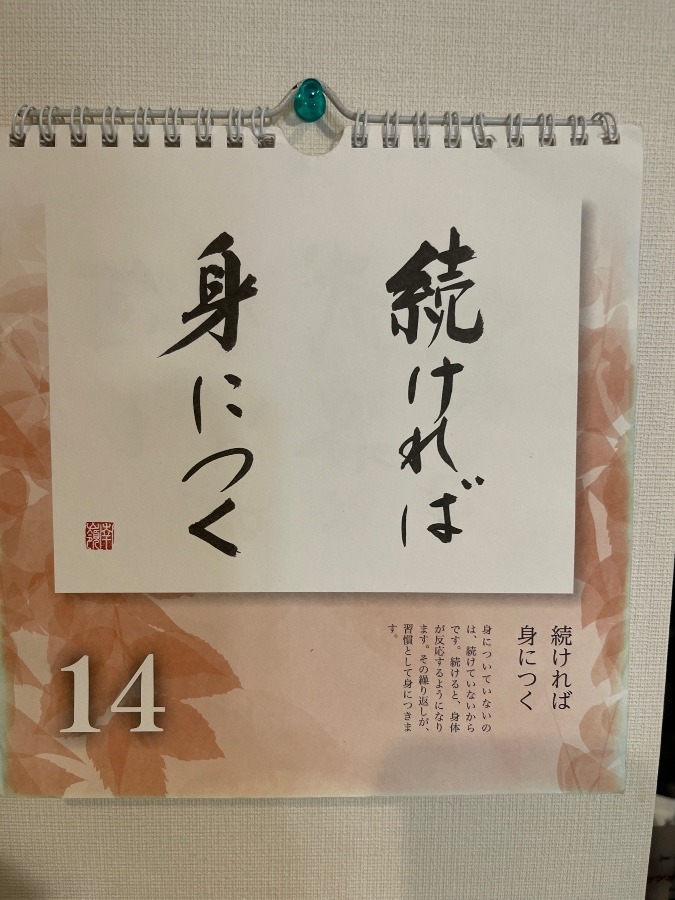 続ければ
身につく
南嶺
続ければ
身につく
身についていないの
は、続けていないから
です。続けると、身体
が反応するようになり
ます。その繰り返しが、
習慣として身につきま
す。
14